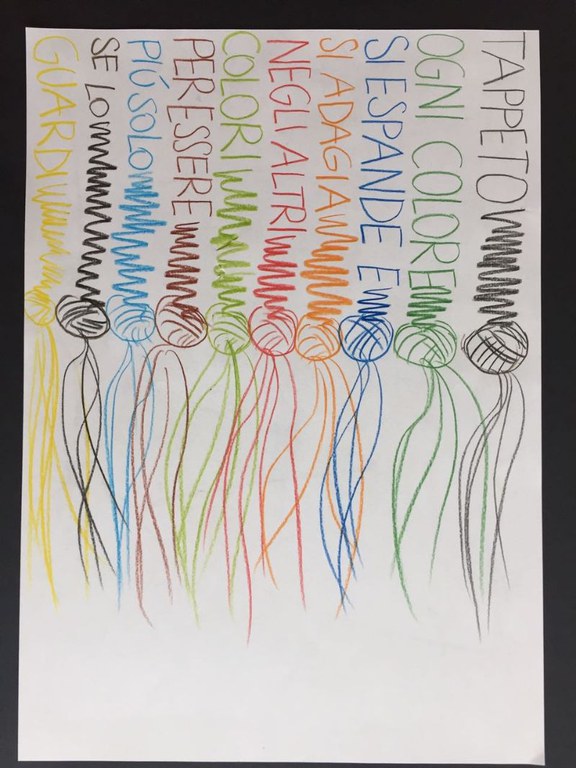 TAPPETO
OGNI COLORE
SI ESPANDE E
SI ADAGIA
NEGLI ALTRI
COLORI
PER ESSERE
PIÚ SOLO
SE LO
GUARDI